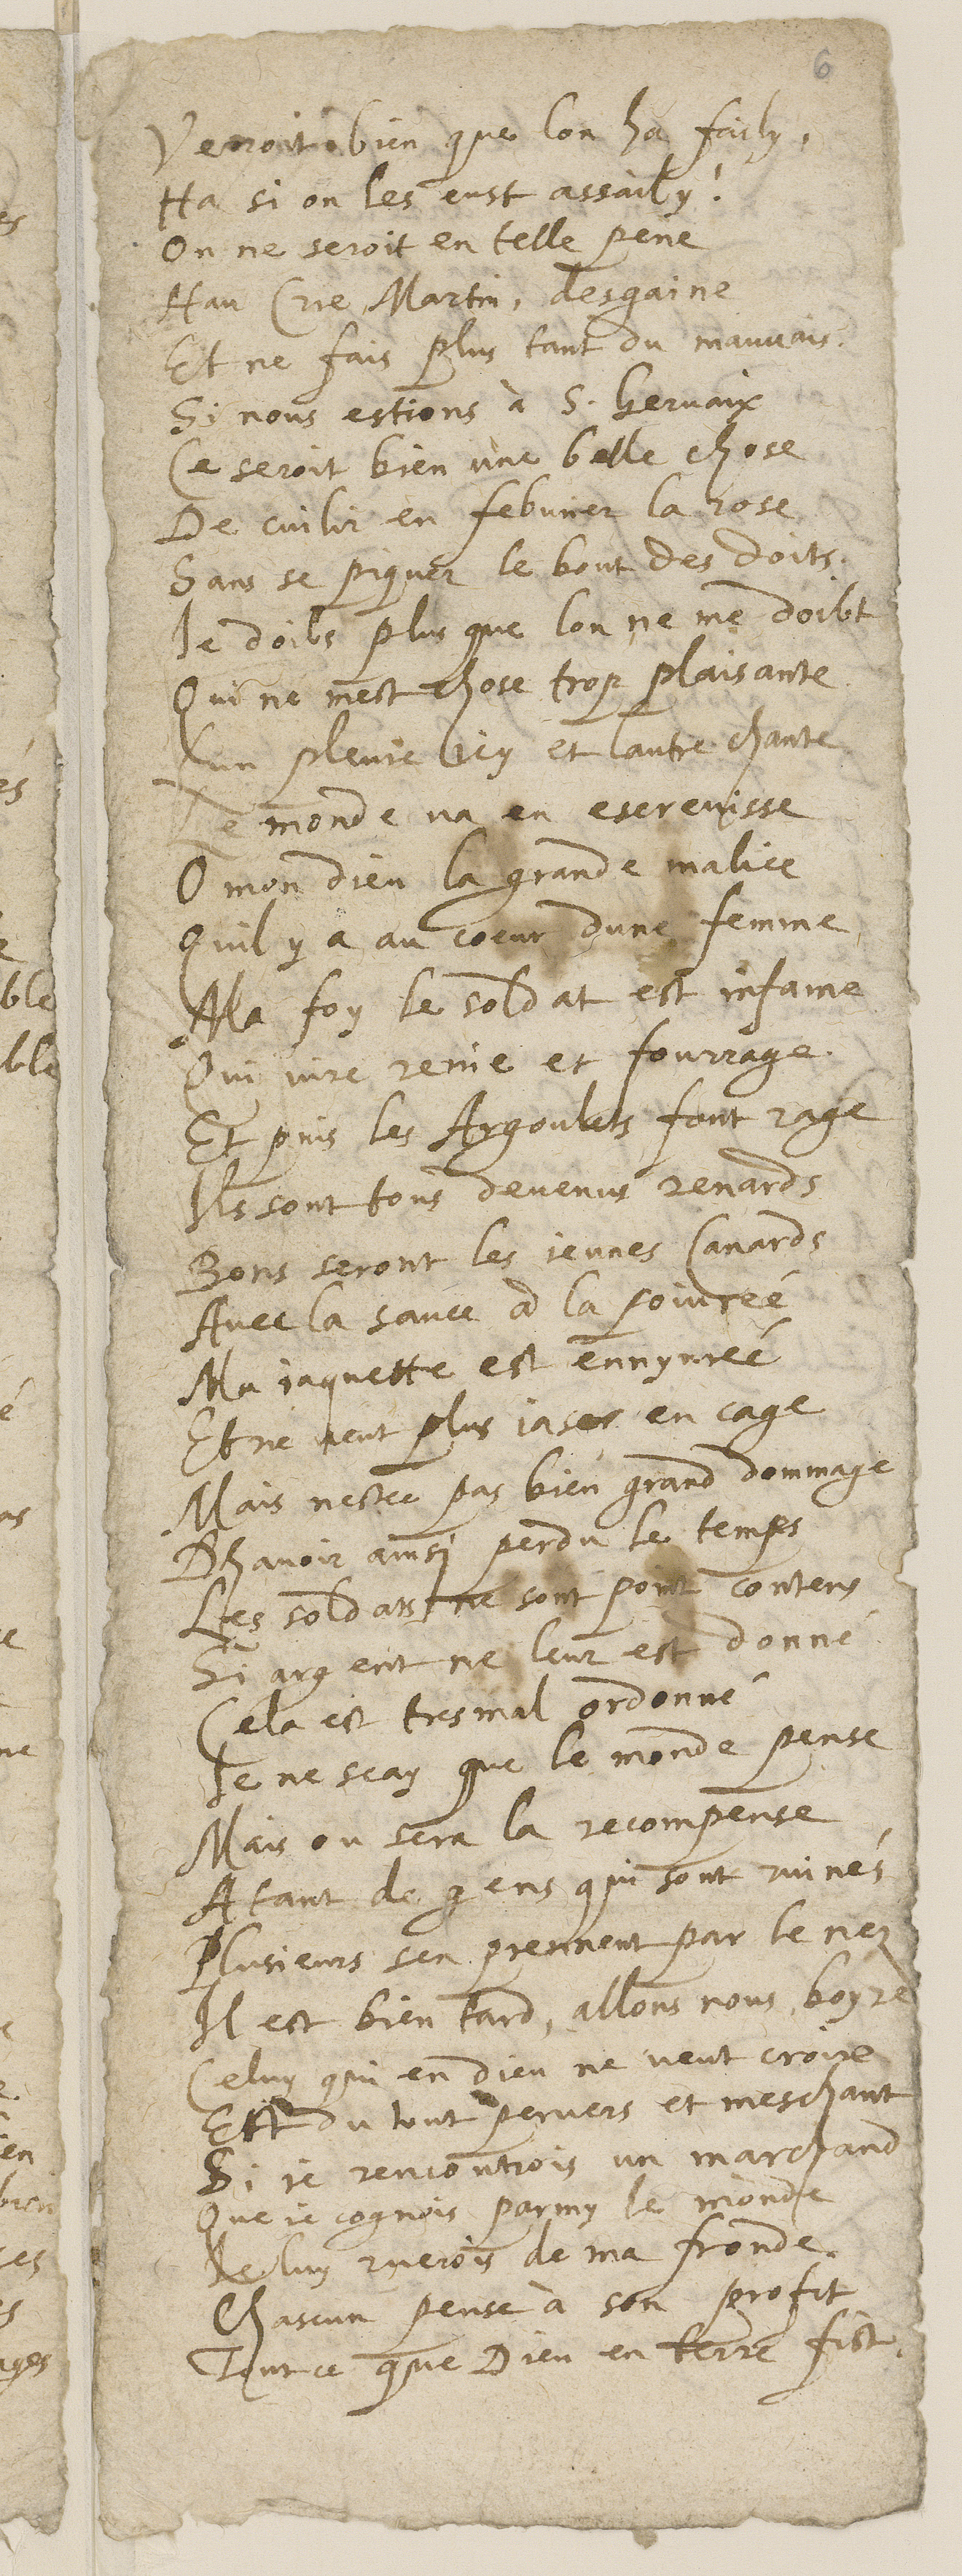 6
Verroit bien que lon ha faily,
Ha si on les eust assaily!
On ne seroit en telle pene
Hau Cre Martin, desgaine
Et ne fais plus tant du mauuais.
Si nous estions à S. Geruaix
Ce seroit bien une belle chose
De cuilir en feburier la rose
Sans se piquer le bout des doits.
Ie doibs plus que lon ne me doibt
Qui ne mest chose trop plaisante
Lun pleure icy et lautre chante
Le monde va en escreuisse
O mon dieu la grande malice
Quil y a au coeur dune femme
Ma foy le soldat est infame
Qui iure renie et fourrage.
Et puis les Argoulets font rage
Ils sont tous deuenus renards
Bons seront les ieunes Canards
Auec la sauce a la poiureé
Ma iaquette est ennyureé
Et ne veut plus iaser en cage
Mais nestce pas bien grand dommage
Dhauoir ainsi perdu le temps
Les soldatz ne sont point contens
Si argent ne leur est donné
Cela est tresmal ordonné
Ie ne scay que le monde pense
Mais ou sera la recompense
A tant de gens qui sont ruinés
Plusieurs sen prennent par le nez
Il est bien tard, allons nous boyre
Celuy qui en dieu ne veut croire
Est du tout peruers et meschant
Si ie rencontrois un marchand
Que ie cognois parmy le monde
Ie luy ruerois de ma fronde.
Chascun pense à son profit
Tout ce que Dieu en terre fist.